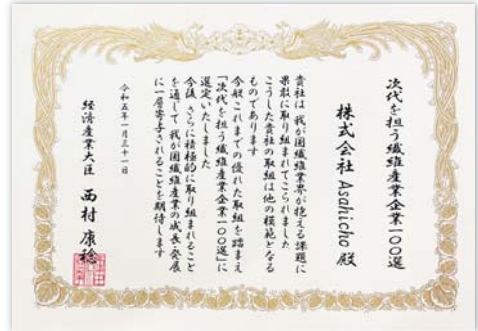 次代を担う繊維産業企業一〇〇選
株式会社 Asahicho 殿
貴社は 我が国繊維業界が抱える課題に
果敢に取り組まれてこられました
こうした貴社の取組は他の模範となる
ものであります
今般これまでの優れた取組を踏まえ
「次代を担う繊維産業企業一〇〇選」に
選定いたしました
今後 さらに積極的に取り組まれること
を通して 我が国繊維産業の成長・発展
に一層寄与されることを期待します
令和五年一月三十一日
経済産業大臣 西村 康稔